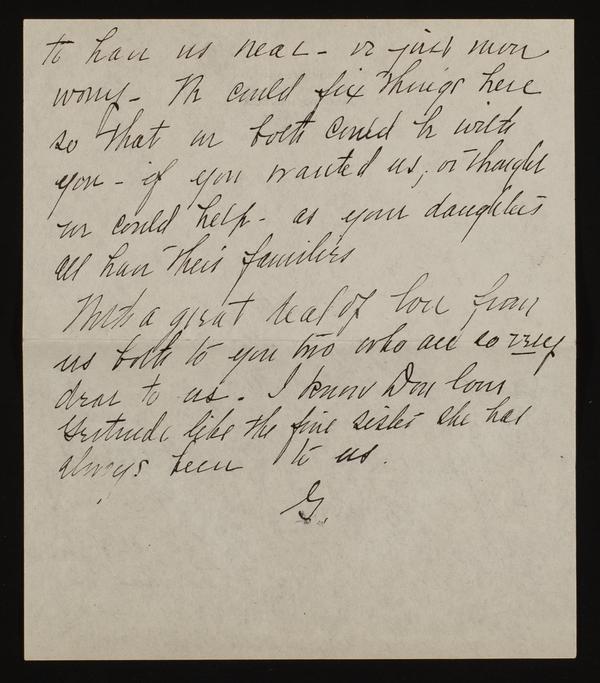 to have us near - or just more
worry - We could fix things here
so that we both could be with
you - if you wanted us, or thought
we could help - as your daughters
all have their families
With a great deal of love from
us both to you two who are so very
dear to us. I know Don loves
Gertrude like the fine sister she has
always been to us.
G.